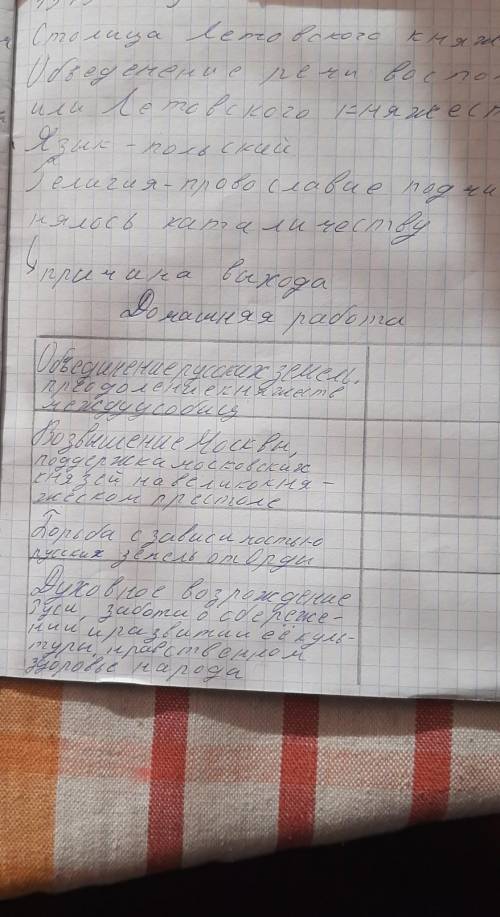 Столица Летовского княж
Обведенение речи восто
или Летовского княжест
Язык - польский
Религия - провославие подчи
нялось каталичеству
причина выхода
Домашняя работа
Объединение русских земель.
преодоление княжеств
междуусобиц
Возвышение Москвы,
поддержка московских
князей на великокня-
жеском престоле
Борьба с зависимостью
русских земель от Орды
Духовное возрождение
Руси, забота о сбереже-
нии и развитии её куль-
туры, нравственном
здоровье народа